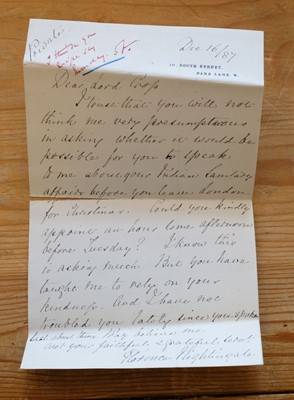 Private
Dec 16/87
10, SOUTH STREET,
PARK LANE, W.
Dear Lord Cross
I know that you will not
think me very presumptuous
in asking whether it would be
possible for you to speak
to me about Indian Sanitary
affairs before you leave London
for Christmas. Could you kindly
appoint an hour some afternoon
before Tuesday? I know this
is asking much. But you have
taught me to rely on your
kindness. And I have not
troubled you lately since you spoke
last about this. Pray believe me
ever your faithful & grateful servt
Florence Nightingale